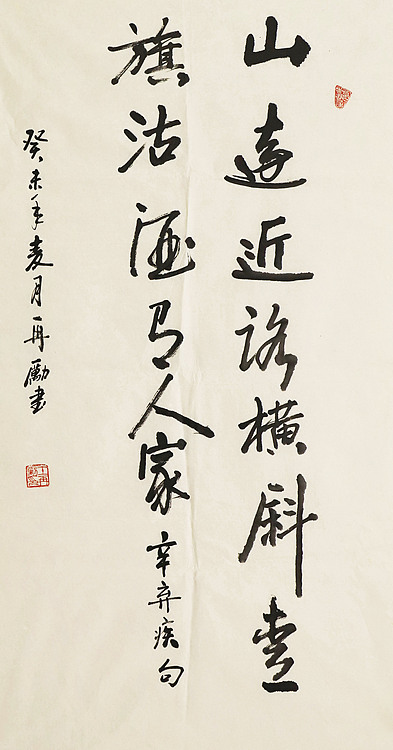 山遠近路横斜青
旗沽酒有人家 辛弃疾句
癸未年夏月再勵書